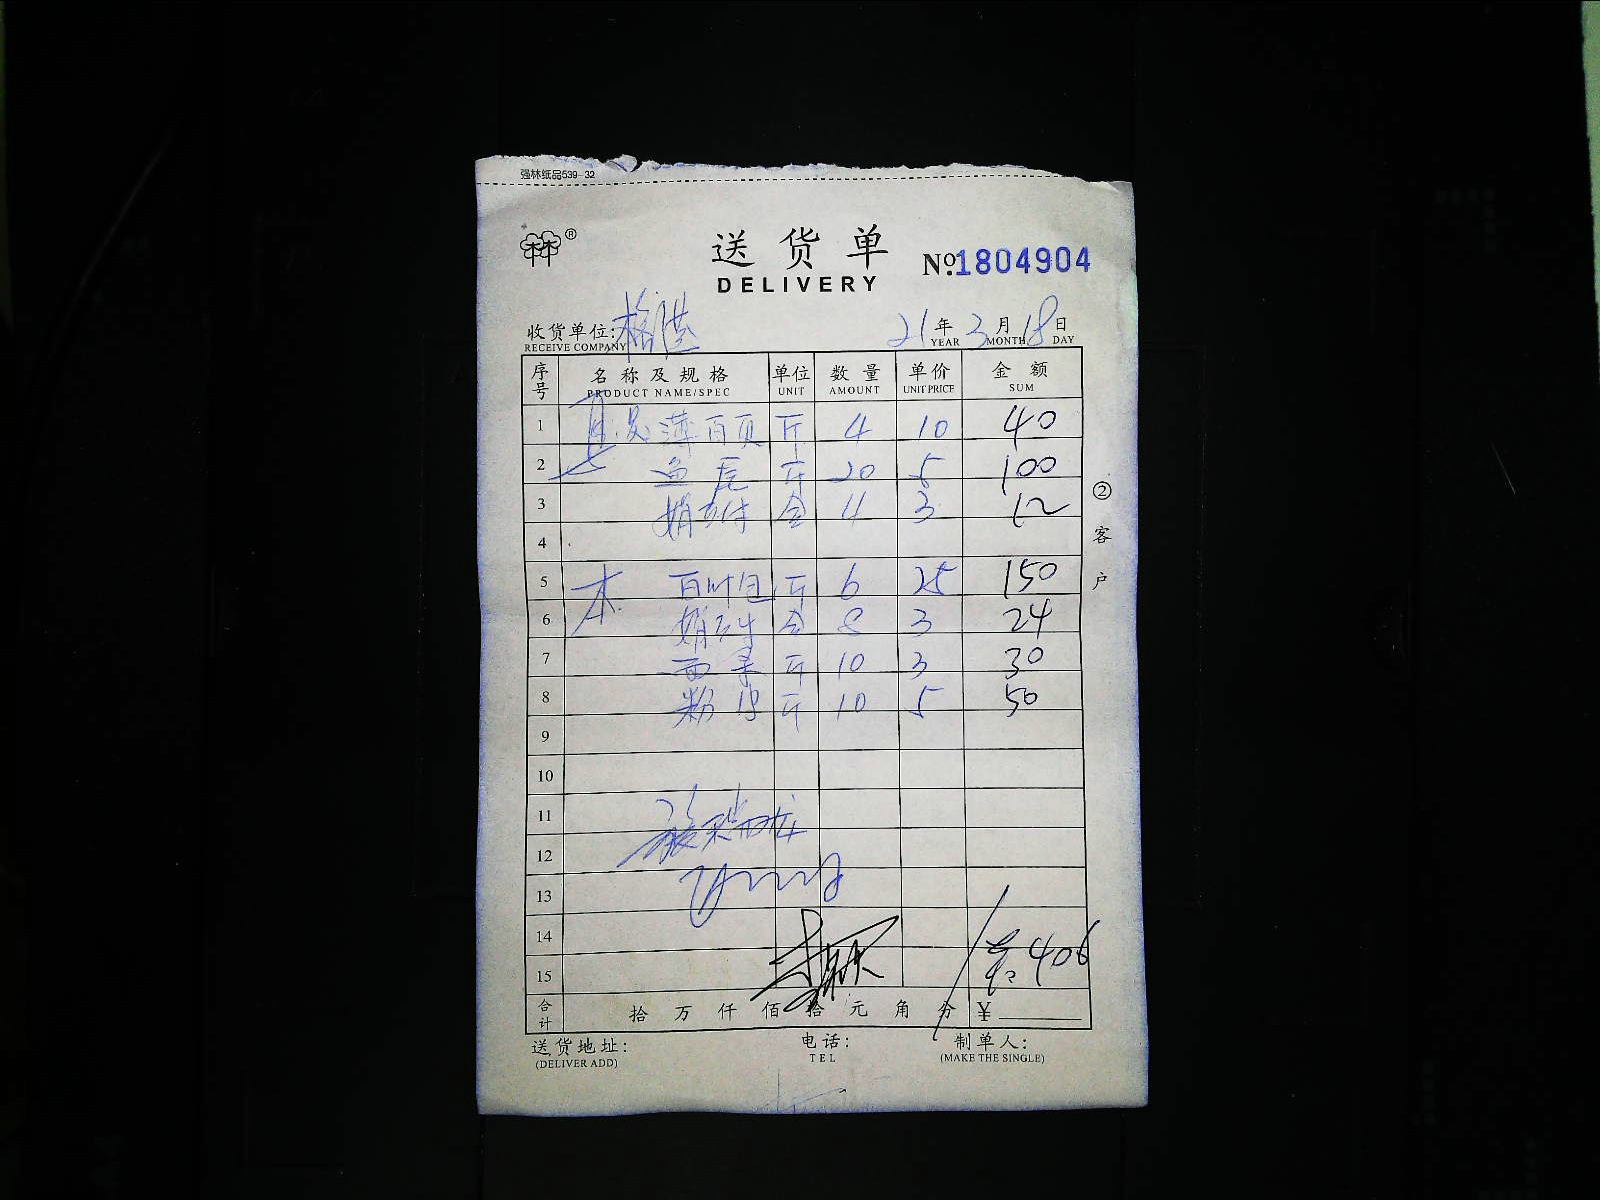 强林纸品539-32
林林®
送货单
DELIVERY
№1804904
收货单位:
RECEIVE COMPANY
21年3月18日
YEAR MONTH DAY
序号 名称及规格 单位 数量 单价 金额
PRODUCT NAME/SPEC UNIT AMOUNT UNIT PRICE SUM
1 薄百页 斤 4 10 40
2 斤 20 5 100
3 合 4 3 12
4
5 本 百叶包 斤 6 25 150
6 合 8 3 24
7 斤 10 3 30
8 粉皮 斤 10 5 50
9
10
11
12
13
14
15 406
合计 拾万仟佰拾元角分 ¥
送货地址: 电话: 制单人:
(DELIVER ADD) TEL (MAKE THE SINGLE)
②客户